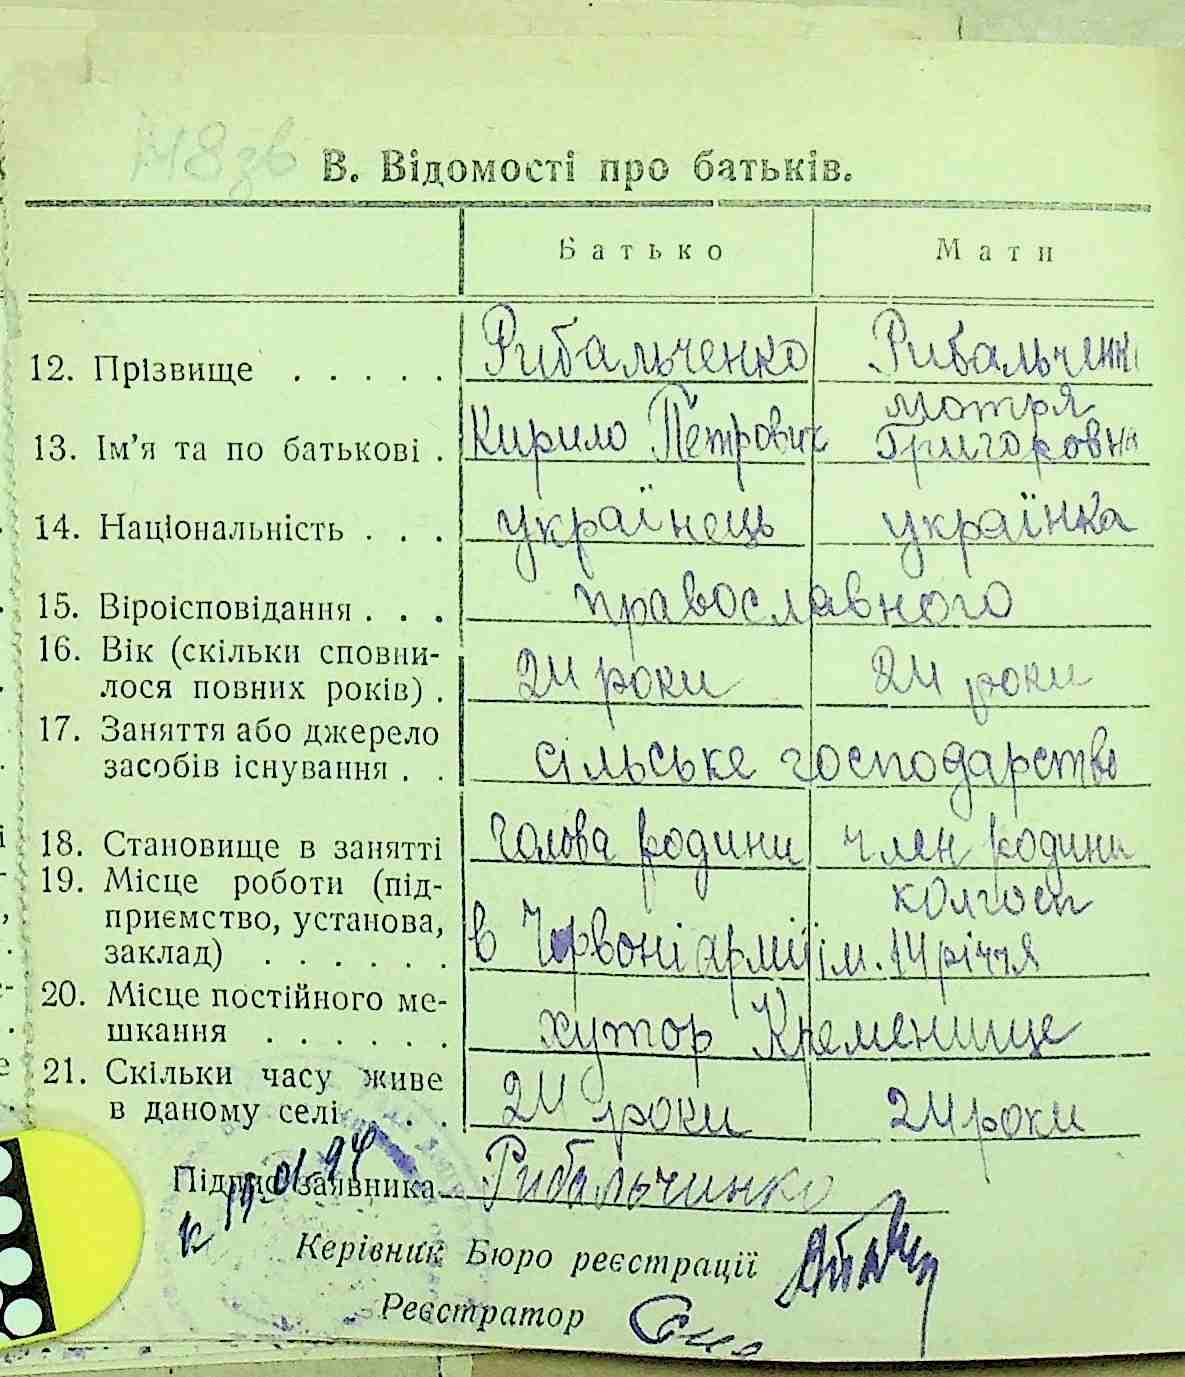 148 зв
В. Відомості про батьків.
Батько Мати
12. Прізвище . . . . . Рибальченко Рибальченк
13. Ім’я та по батькові . Кирило Петрович Мотря Григоровна
14. Національність . . . українець українка
15. Віроісповідання . . . православного
16. Вік (скільки сповни-
лося повних років) . 24 роки 24 роки
17. Заняття або джерело
засобів існування . . сільське господарство
18. Становище в занятті голова родини член родини
19. Місце роботи (під-
приємство, установа,
заклад) . . . . . . в Червоні армії колгосп ім. 14 річчя
20. Місце постійного ме-
шкання . . . . . . хутор Кременище
21. Скільки часу живе
в даному селі . . . 24 роки 24 роки
Підпис заявника Рибальчинко
Керівник Бюро реєстрації
Реєстратор